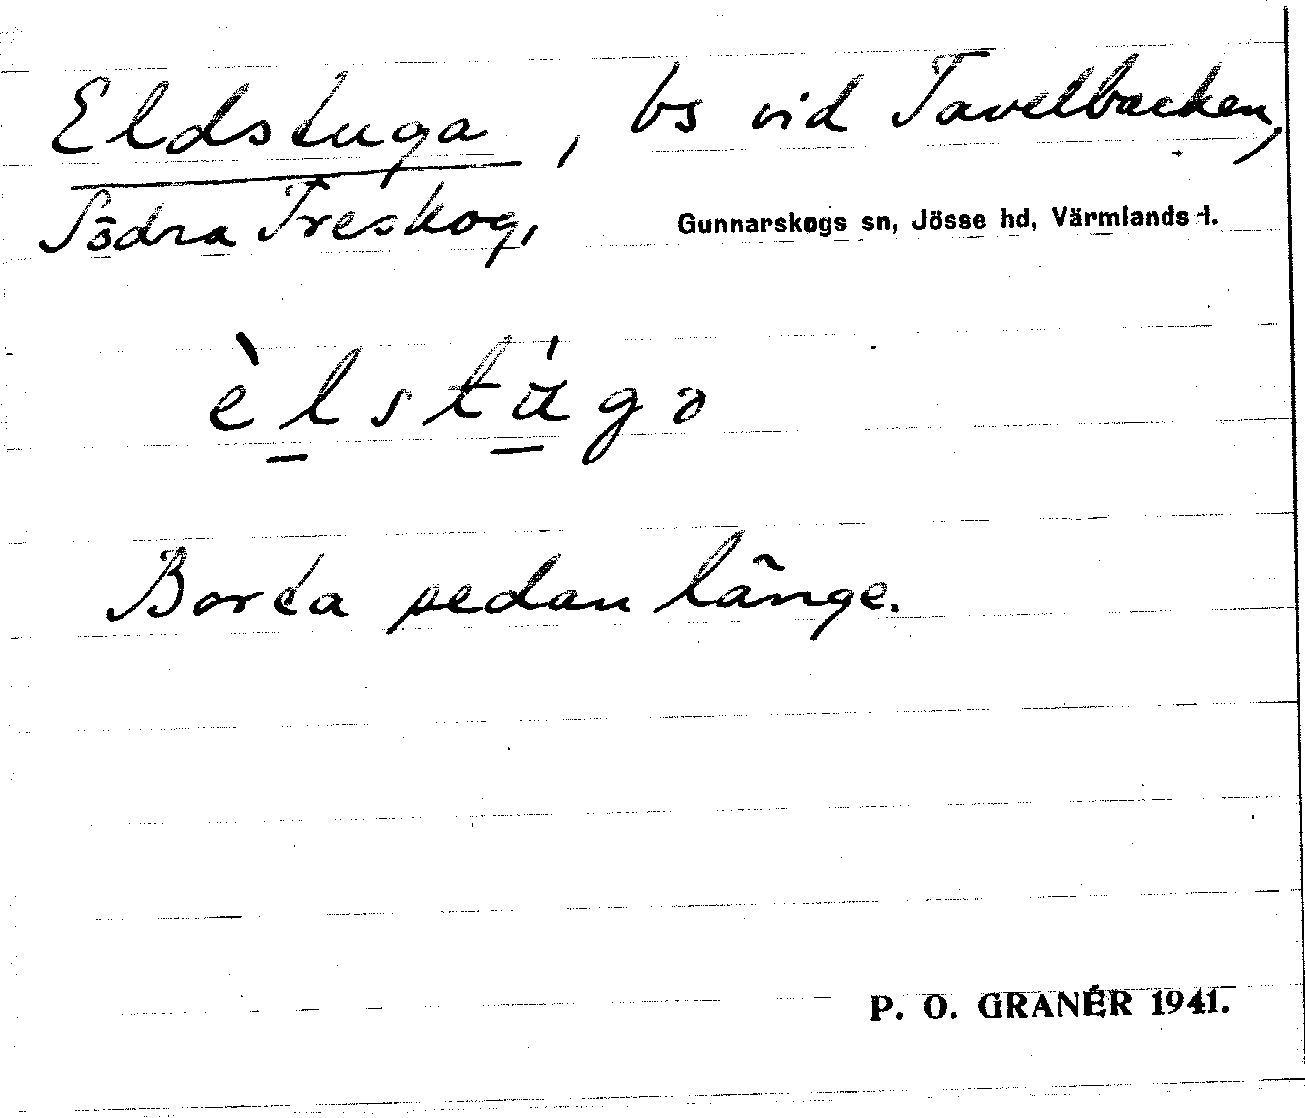 Eldstuga, bs vid Tavelbacken,
Södra Treskog, Gunnarskogs sn, Jösse hd, Värmlands l.
èlstúgo
Borta sedan länge.
P. O. GRANÉR 1941.